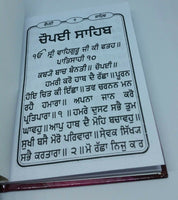 ਚੌਪਈ ਸਾਹਿਬ
ਚੌਪਈ ਸਾਹਿਬ
ੴ ਸ੍ਰੀ ਵਾਹਿਗੁਰੂ ਜੀ ਕੀ ਫਤਹ॥
ਪਾਤਿਸਾਹੀ ੧੦
ਕਬਯੋ ਬਾਚ ਬੇਨਤੀ॥ ਚੌਪਈ॥
ਹਮਰੀ ਕਰੋ ਹਾਥ ਦੈ ਰੱਛਾ॥ ਪੂਰਨ
ਹੋਇ ਚਿਤ ਕੀ ਇੱਛਾ॥ ਤਵ ਚਰਨਨ ਮਨ
ਰਹੈ ਹਮਾਰਾ॥ ਅਪਨਾ ਜਾਨ ਕਰੋ
ਪ੍ਰਤਿਪਾਰਾ॥ ੧॥ ਹਮਰੇ ਦੁਸਟ ਸਭੈ ਤੁਮ
ਘਾਵਹੁ॥ ਆਪੁ ਹਾਥ ਦੈ ਮੋਹਿ ਬਚਾਵਹੁ॥
ਸੁਖੀ ਬਸੈ ਮੋਰੋ ਪਰਿਵਾਰਾ॥ ਸੇਵਕ ਸਿੱਖ੍ਯ
ਸਭੈ ਕਰਤਾਰਾ॥ ੨॥ ਮੋ ਰੱਛਾ ਨਿਜੁ ਕਰ